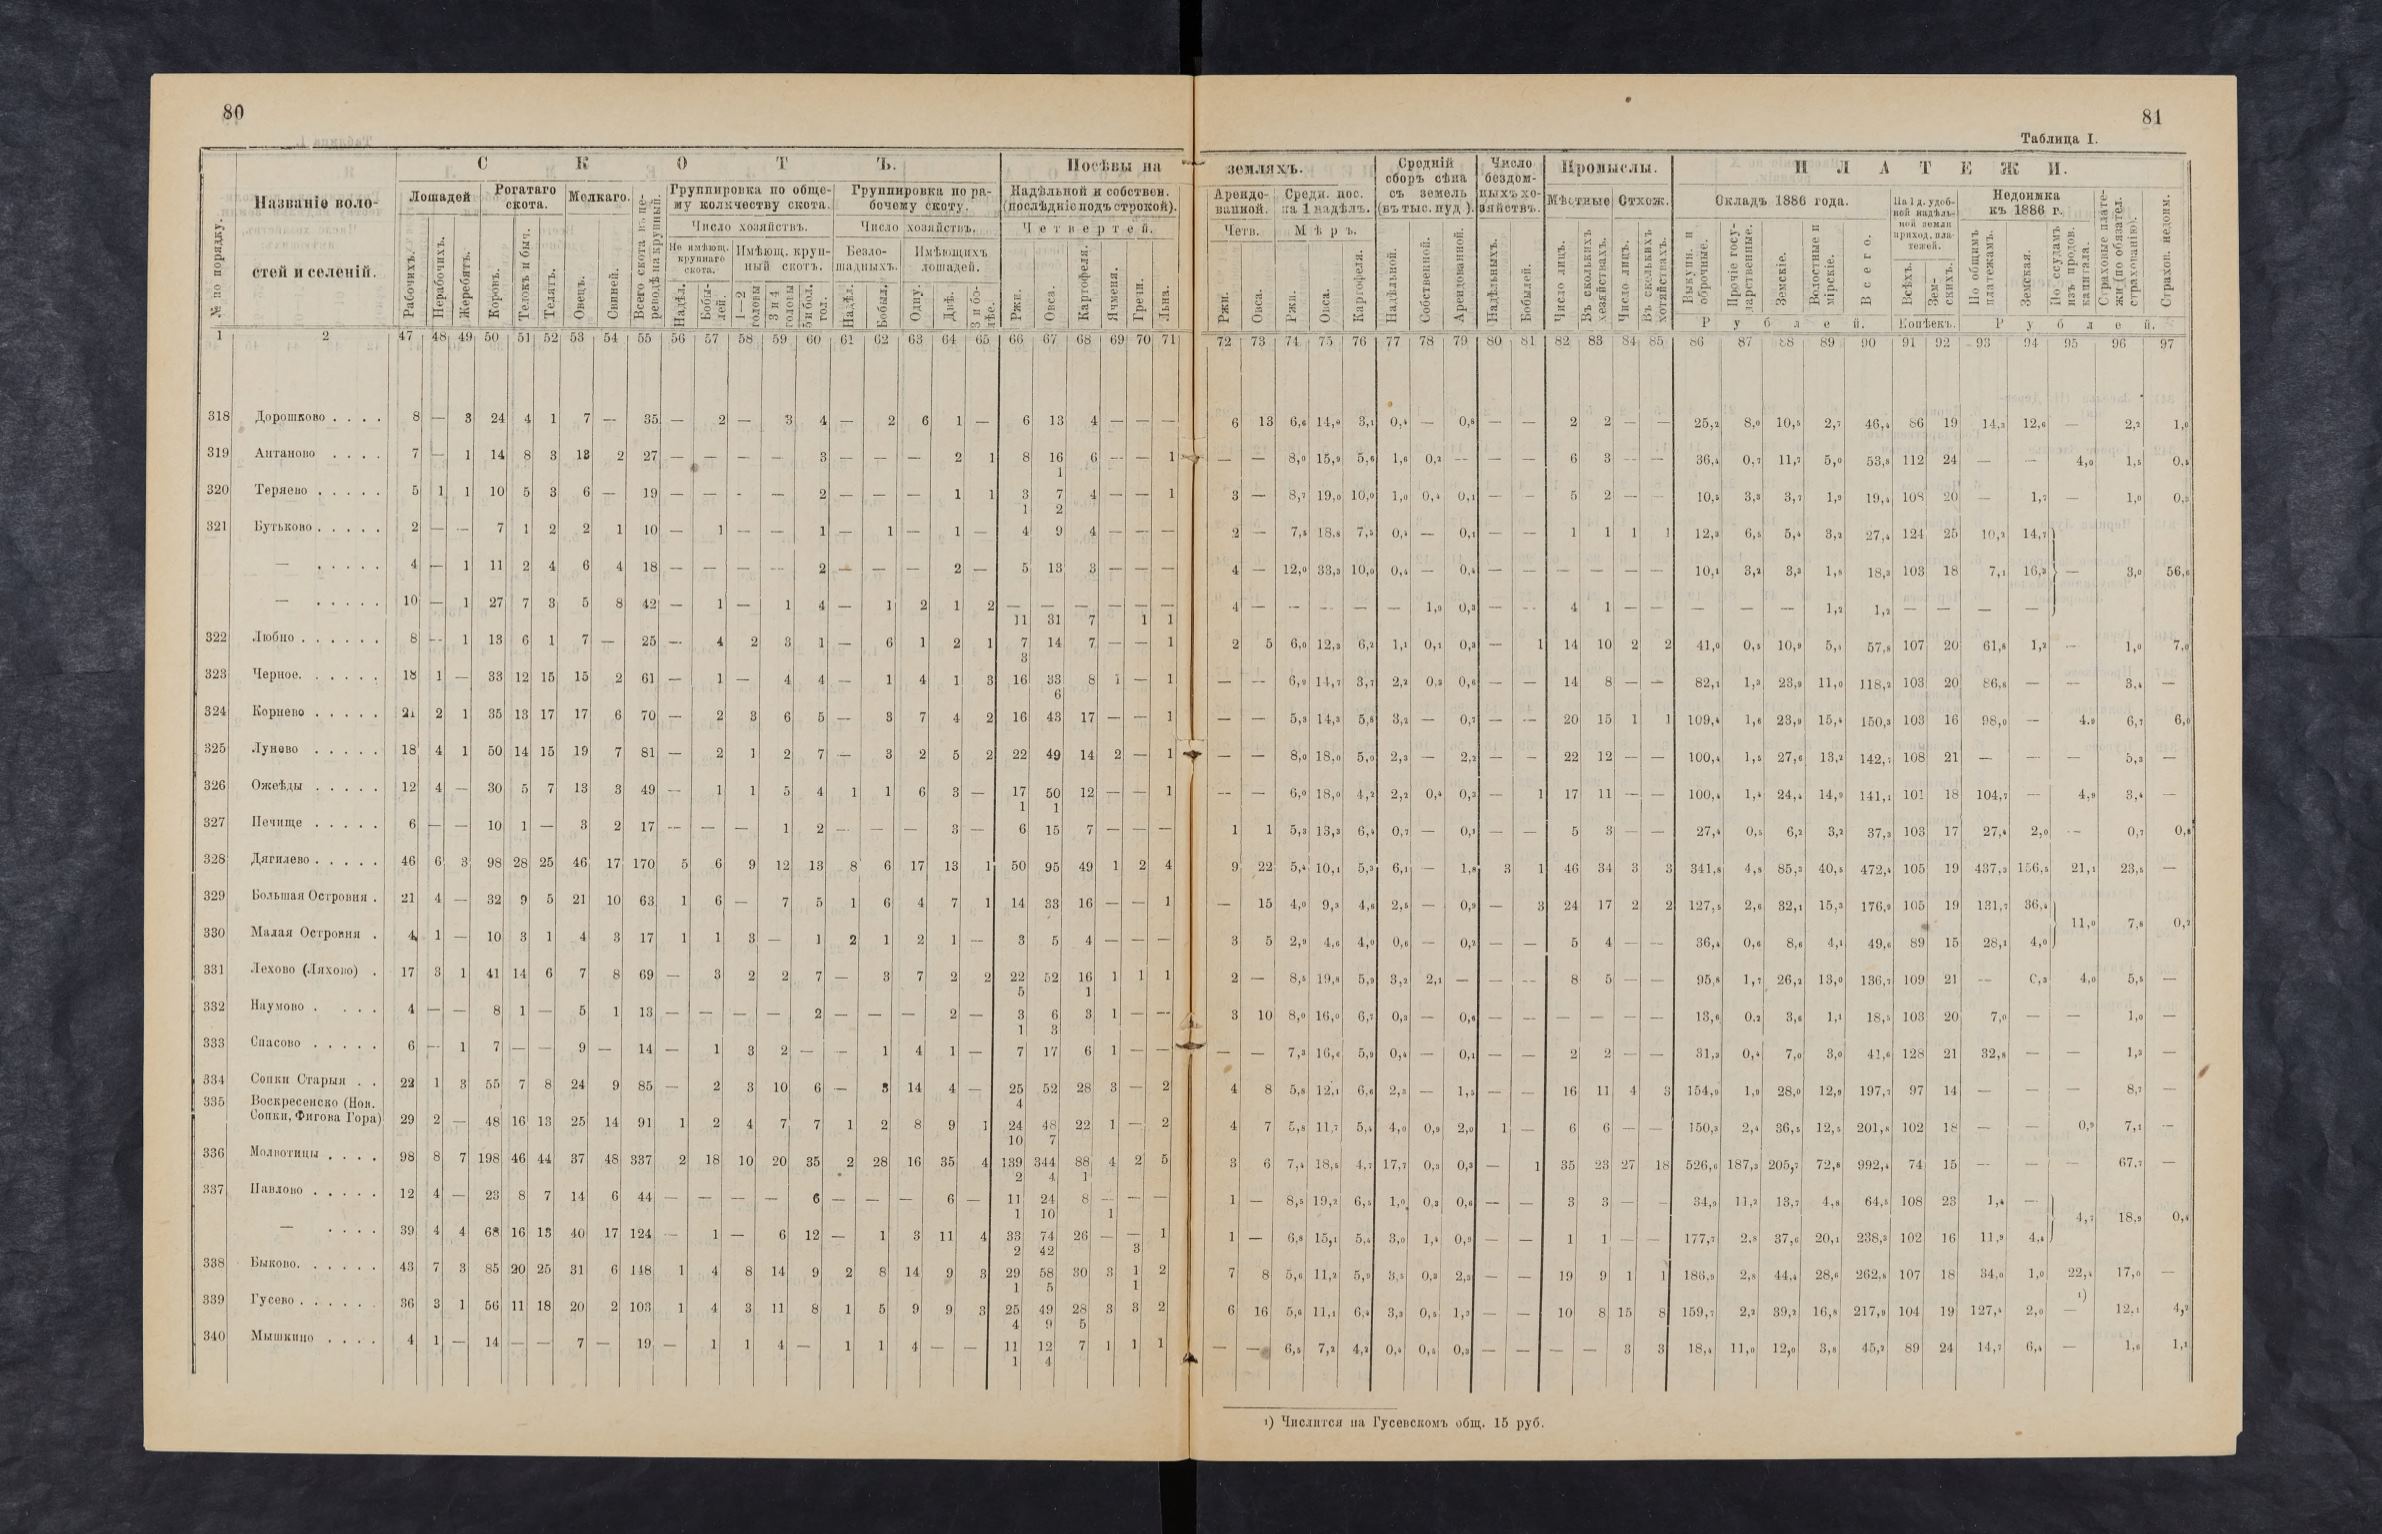 80
81
Таблица I.
№ по порядку.
Названіе воло-
стей и селеній.
С К О Т Ъ.
Лошадей
Рогатаго
скота.
Мелкаго.
Рабочихъ.
Нерабочихъ.
Жеребятъ.
Коровъ.
Телокъ и быч.
Телятъ.
Овецъ.
Свиней.
Всего скота въ пе-
реводѣ на крупный.
Группировка по обще-
му количеству скота.
Группировка по ра-
бочему скоту.
Число хозяйствъ.
Число хозяйствъ.
Не имѣющ.
крупнаго
скота.
Имѣющ. круп-
ный скотъ.
Безло-
шадныхъ.
Имѣющихъ
лошадей.
Надѣл.
Бобы-
лей.
1—2
головы
3 и 4
головы
5 и бол.
гол.
Надѣл.
Бобыл.
Одну.
Двѣ.
3 и бо-
лѣе.
Посѣвы на
земляхъ.
Надѣльной и собствен.
(послѣдніе подъ строкой).
Четвертей.
Ржи.
Овса.
Картофеля.
Ячменя.
Гречи.
Льна.
Арендо-
ванной.
Четв.
Ржи.
Овса.
Средн. пос.
на 1 надѣлъ.
Мѣръ.
Ржи.
Овса.
Картофеля.
Средній
сборъ сѣна
съ земель
(въ тыс. пуд.).
Надѣльной.
Собственной.
Арендованной.
Число
бездом-
ныхъ хо-
зяйствъ.
Надѣльныхъ.
Бобылей.
Промыслы.
Мѣстные
Отхож.
Число лицъ.
Въ сколькихъ
хозяйствахъ.
Число лицъ.
Въ сколькихъ
хозяйствахъ.
П Л А Т Е Ж И.
Окладъ 1886 года.
Выкупн. и
оброчные.
Прочіе госу-
дарственные.
Земскіе.
Волостные и
мірскіе.
Всего.
Рублей.
На 1 д. удоб-
ной надѣль-
ной земли
приход. пла-
тежей.
Всѣхъ.
Зем-
скихъ.
Копѣекъ.
Недоимка
къ 1886 г.
По общимъ
платежамъ.
Земская.
По ссудамъ
изъ продов.
капитала.
Страховые плате-
жи (по обязател.
страхованію).
Страхов. недоим.
Рублей.
1 2 47 48 49 50 51 52 53 54 55 56 57 58 59 60 61 62 63 64 65 66 67 68 69 70 71 72 73 74 75 76 77 78 79 80 81 82 83 84 85 86 87 88 89 90 91 92 93 94 95 96 97
318 Дорошково . . . . 8 — 3 24 4 1 7 — 35 — 2 — 3 4 — 2 6 1 — 6 13 4 — — — 6 13 6,6 14,9 3,1 0,4 — 0,8 — — 2 2 — — 25,2 8,0 10,5 2,7 46,4 86 19 14,3 12,6 — 2,2 1,0
319 Антаново . . . . 7 — 1 14 8 3 13 2 27 — — — — 3 — — — 2 1 8 16 6 — — 1 — — 8,0 15,9 5,6 1,6 0,2 — — — 6 3 — — 36,4 0,7 11,7 5,0 53,8 112 24 — — 4,0 1,5 0,5
1
320 Теряево . . . . . 5 1 1 10 5 3 6 — 19 — — — — 2 — — — 1 1 3 7 4 — — 1 3 — 8,7 19,0 10,0 1,0 0,4 0,1 — — 5 2 — — 10,5 3,3 3,7 1,9 19,4 108 20 — 1,7 — 1,0
1 2
321 Бутьково . . . . . 2 — — 7 1 2 2 1 10 — 1 — — 1 — 1 — 1 — 4 9 4 — — — 2 — 7,5 18,8 7,5 0,4 — 0,1 — — 1 1 1 1 12,3 6,5 5,4 3,2 27,4 124 25 10,2 14,7
— . . . . . 4 — 1 11 2 4 6 4 18 — — — — 2 — — — 2 — 5 13 3 — — — 4 — 12,0 33,3 10,0 0,4 — 0,4 — — — — — — 10,1 3,2 3,3 1,8 18,3 103 18 7,1 16,3 — 3,0 56,6
— . . . . . 10 — 1 27 7 3 5 8 42 — 1 — 1 4 — 1 2 1 2 — — — — — — 4 — — — — — 1,9 0,3 — — 4 1 — — — — — 1,2 1,2 — — — —
11 31 7 1 1
322 Любно . . . . . . 8 — 1 13 6 1 7 — 25 — 4 2 3 1 — 6 1 2 1 7 14 7 — — 1 2 5 6,0 12,3 6,2 1,1 0,1 0,3 — 1 14 10 2 2 41,0 0,5 10,9 5,4 57,8 107 20 61,8 1,2 — 1,0 7,0
3
323 Черное. . . . . . 18 1 — 33 12 15 15 2 61 — 1 — 4 4 — 1 4 1 3 16 33 8 1 — 1 — — 6,9 14,7 3,7 2,2 0,3 0,6 — — 14 8 — — 82,1 1,3 23,9 11,0 118,3 103 20 86,8 — — 3,4 —
6
324 Корнево . . . . . 21 2 1 35 13 17 17 6 70 — 2 3 6 5 — 3 7 4 2 16 43 17 — — 1 — — 5,3 14,3 5,8 3,2 — 0,7 — — 20 15 1 1 109,4 1,6 23,9 15,4 150,3 103 16 98,0 — 4,0 6,7 6,0
325 Лунево . . . . . 18 4 1 50 14 15 19 7 81 — 2 1 2 7 — 3 2 5 2 22 49 14 2 — 1 — — 8,0 18,0 5,0 2,3 — 2,2 — — 22 12 — — 100,4 1,5 27,6 13,2 142,7 108 21 — — — 5,3 —
326 Ожеѣды . . . . . 12 4 — 30 5 7 13 3 49 — 1 1 5 4 1 1 6 3 — 17 50 12 — — 1 — — 6,0 18,0 4,2 2,2 0,4 0,3 — 1 17 11 — — 100,4 1,4 24,4 14,9 141,1 101 18 104,7 — 4,9 3,4 —
1 1
327 Печище . . . . . 6 — — 10 1 — 3 2 17 — — — 1 2 — — — 3 — 6 15 7 — — — 1 1 5,3 13,3 6,4 0,7 — 0,1 — — 5 3 — — 27,4 0,5 6,2 3,2 37,3 103 17 27,4 2,0 — 0,7 0,8
328 Дягилево . . . . . 46 6 3 98 28 25 46 17 170 5 6 9 12 13 8 6 17 13 1 50 95 49 1 2 4 9 22 5,4 10,1 5,3 6,1 — 1,8 3 1 46 34 3 3 341,8 4,8 85,3 40,5 472,4 105 19 437,3 156,5 21,1 23,5 —
329 Большая Островня . 21 4 — 32 9 5 21 10 63 1 6 — 7 5 1 6 4 7 1 14 33 16 — — 1 — 15 4,0 9,3 4,6 2,5 — 0,9 — 3 24 17 2 2 127,5 2,6 32,1 15,3 176,9 105 19 131,7 36,4
330 Малая Островня . 4 1 — 10 3 1 4 3 17 1 1 3 — 1 2 1 2 1 — 3 5 4 — — — 3 5 2,9 4,6 4,0 0,6 — 0,2 — — 5 4 — — 36,4 0,6 8,6 4,1 49,6 89 15 28,1 4,0 11,0 7,8 0,2
331 Лехово (Ляхово) . 17 3 1 41 14 6 7 8 69 — 3 2 2 7 — 3 7 2 2 22 52 16 1 1 1 2 — 8,5 19,8 5,9 3,2 2,1 — — — 8 5 — — 95,8 1,7 26,2 13,0 136,7 109 21 — 0,3 4,0 5,8 —
5 1
332 Наумово . . . . 4 — — 8 1 — 5 1 13 — — — — 2 — — — 2 — 3 6 3 1 — — 3 10 8,0 16,0 6,7 0,3 — 0,6 — — — — — — 13,6 0,2 3,6 1,1 18,5 103 20 7,0 — — 1,0 —
1 3
333 Спасово . . . . . 6 — 1 7 — — 9 — 14 — 1 3 2 — — 1 4 1 — 7 17 6 1 — — — — 7,3 16,6 5,9 0,4 — 0,1 — — 2 2 — — 31,3 0,4 7,0 3,0 41,6 128 21 32,8 — — 1,3 —
334 Сопки Старыя . . 22 1 3 55 7 8 24 9 85 — 2 3 10 6 — 3 14 4 — 25 52 28 3 — 2 4 8 5,8 12,1 6,6 2,3 — 1,5 — — 16 11 4 3 154,9 1,9 28,0 12,9 197,7 97 14 — — — 8,7 —
4
335 Воскресенско (Нов.
Сопки, Фигова Гора) 29 2 — 48 16 13 25 14 91 1 2 4 7 7 1 2 8 9 1 24 48 22 1 — 2 4 7 5,8 11,7 5,4 4,0 0,9 2,0 1 — 6 6 — — 150,3 2,4 36,5 12,5 201,8 102 18 — — 0,9 7,1 —
10 7
336 Молвотицы . . . . 98 8 7 198 46 44 37 48 337 2 18 10 20 35 2 28 16 35 4 139 344 88 4 2 5 3 6 7,4 18,5 4,7 17,7 0,3 0,3 — 1 35 23 27 18 526,6 187,3 205,7 72,8 992,4 74 15 — — — 67,7 —
2 4 1
337 Павлово . . . . . 12 4 — 23 8 7 14 6 44 — — — — 6 — — — 6 — 11 24 8 — — — 1 — 8,5 19,2 6,5 1,0 0,3 0,6 — — 3 3 — — 34,9 11,2 13,7 4,8 64,5 108 23 1,4 —
1 10 1
— . . . . 39 4 4 68 16 13 40 17 124 — 1 — 6 12 — 1 3 11 4 33 74 26 — — 1 1 — 6,8 15,1 5,4 3,0 1,4 0,9 — — 1 1 — — 177,7 2,8 37,6 20,1 238,3 102 16 11,9 4,4 4,7 18,9 0,4
2 42 3
338 Быково. . . . . . 43 7 3 85 20 25 31 6 148 1 4 8 14 9 2 8 14 9 3 29 58 30 3 1 2 7 8 5,6 11,2 5,9 3,5 0,3 2,3 — — 19 9 1 1 186,9 2,8 44,4 28,6 262,8 107 18 34,0 1,0 22,4 17,0 —
1 5 1
339 Гусево . . . . . . 36 3 1 56 11 18 20 2 103 1 4 3 11 8 1 5 9 9 3 25 49 28 3 3 2 6 16 5,6 11,1 6,4 3,3 0,5 1,3 — — 10 8 15 8 159,7 2,2 39,2 16,8 217,9 104 19 127,4 2,0 — ¹) 12,1 4,2
4 9 5
340 Мышкино . . . . 4 1 — 14 — — 7 — 19 — 1 1 4 — 1 1 4 — — 11 12 7 1 1 1 — — 6,5 7,2 4,2 0,4 0,5 0,3 — — — — 3 3 18,4 11,0 12,0 3,8 45,2 89 24 14,7 6,4 — 1,6 1,1
1 4
¹) Числится на Гусевскомъ общ. 15 руб.